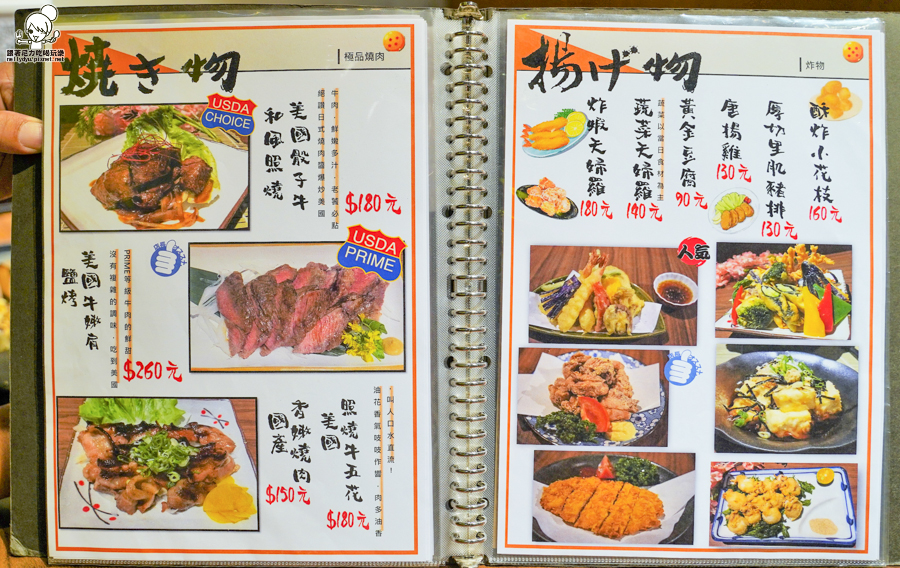 跟著尼力吃喝玩樂
nellydyu.pixnet.net
焼き物
極品燒肉
USDA
CHOICE
牛肉，鮮嫩多汁，老饕必點
絕讚日式燒肉醬爆炒美國
美國骰子牛
和風照燒
$180元
USDA
PRIME
PRIME等級牛肉的鮮甜
沒有複雜的調味，吃到美國
美國牛嫩肩
鹽烤
$260元
叫人口水直流！
油花香氣吱吱作響，肉多油香
照燒牛五花
美國
$180元
香嫩燒肉
國產
$150元
揚げ物
炸物
酥炸小花枝
160元
厚切里肌豬排
130元
唐揚雞
130元
黃金豆腐
90元
蔬菜以當日食材為主
蔬菜天婦羅
140元
炸蝦天婦羅
180元
人氣